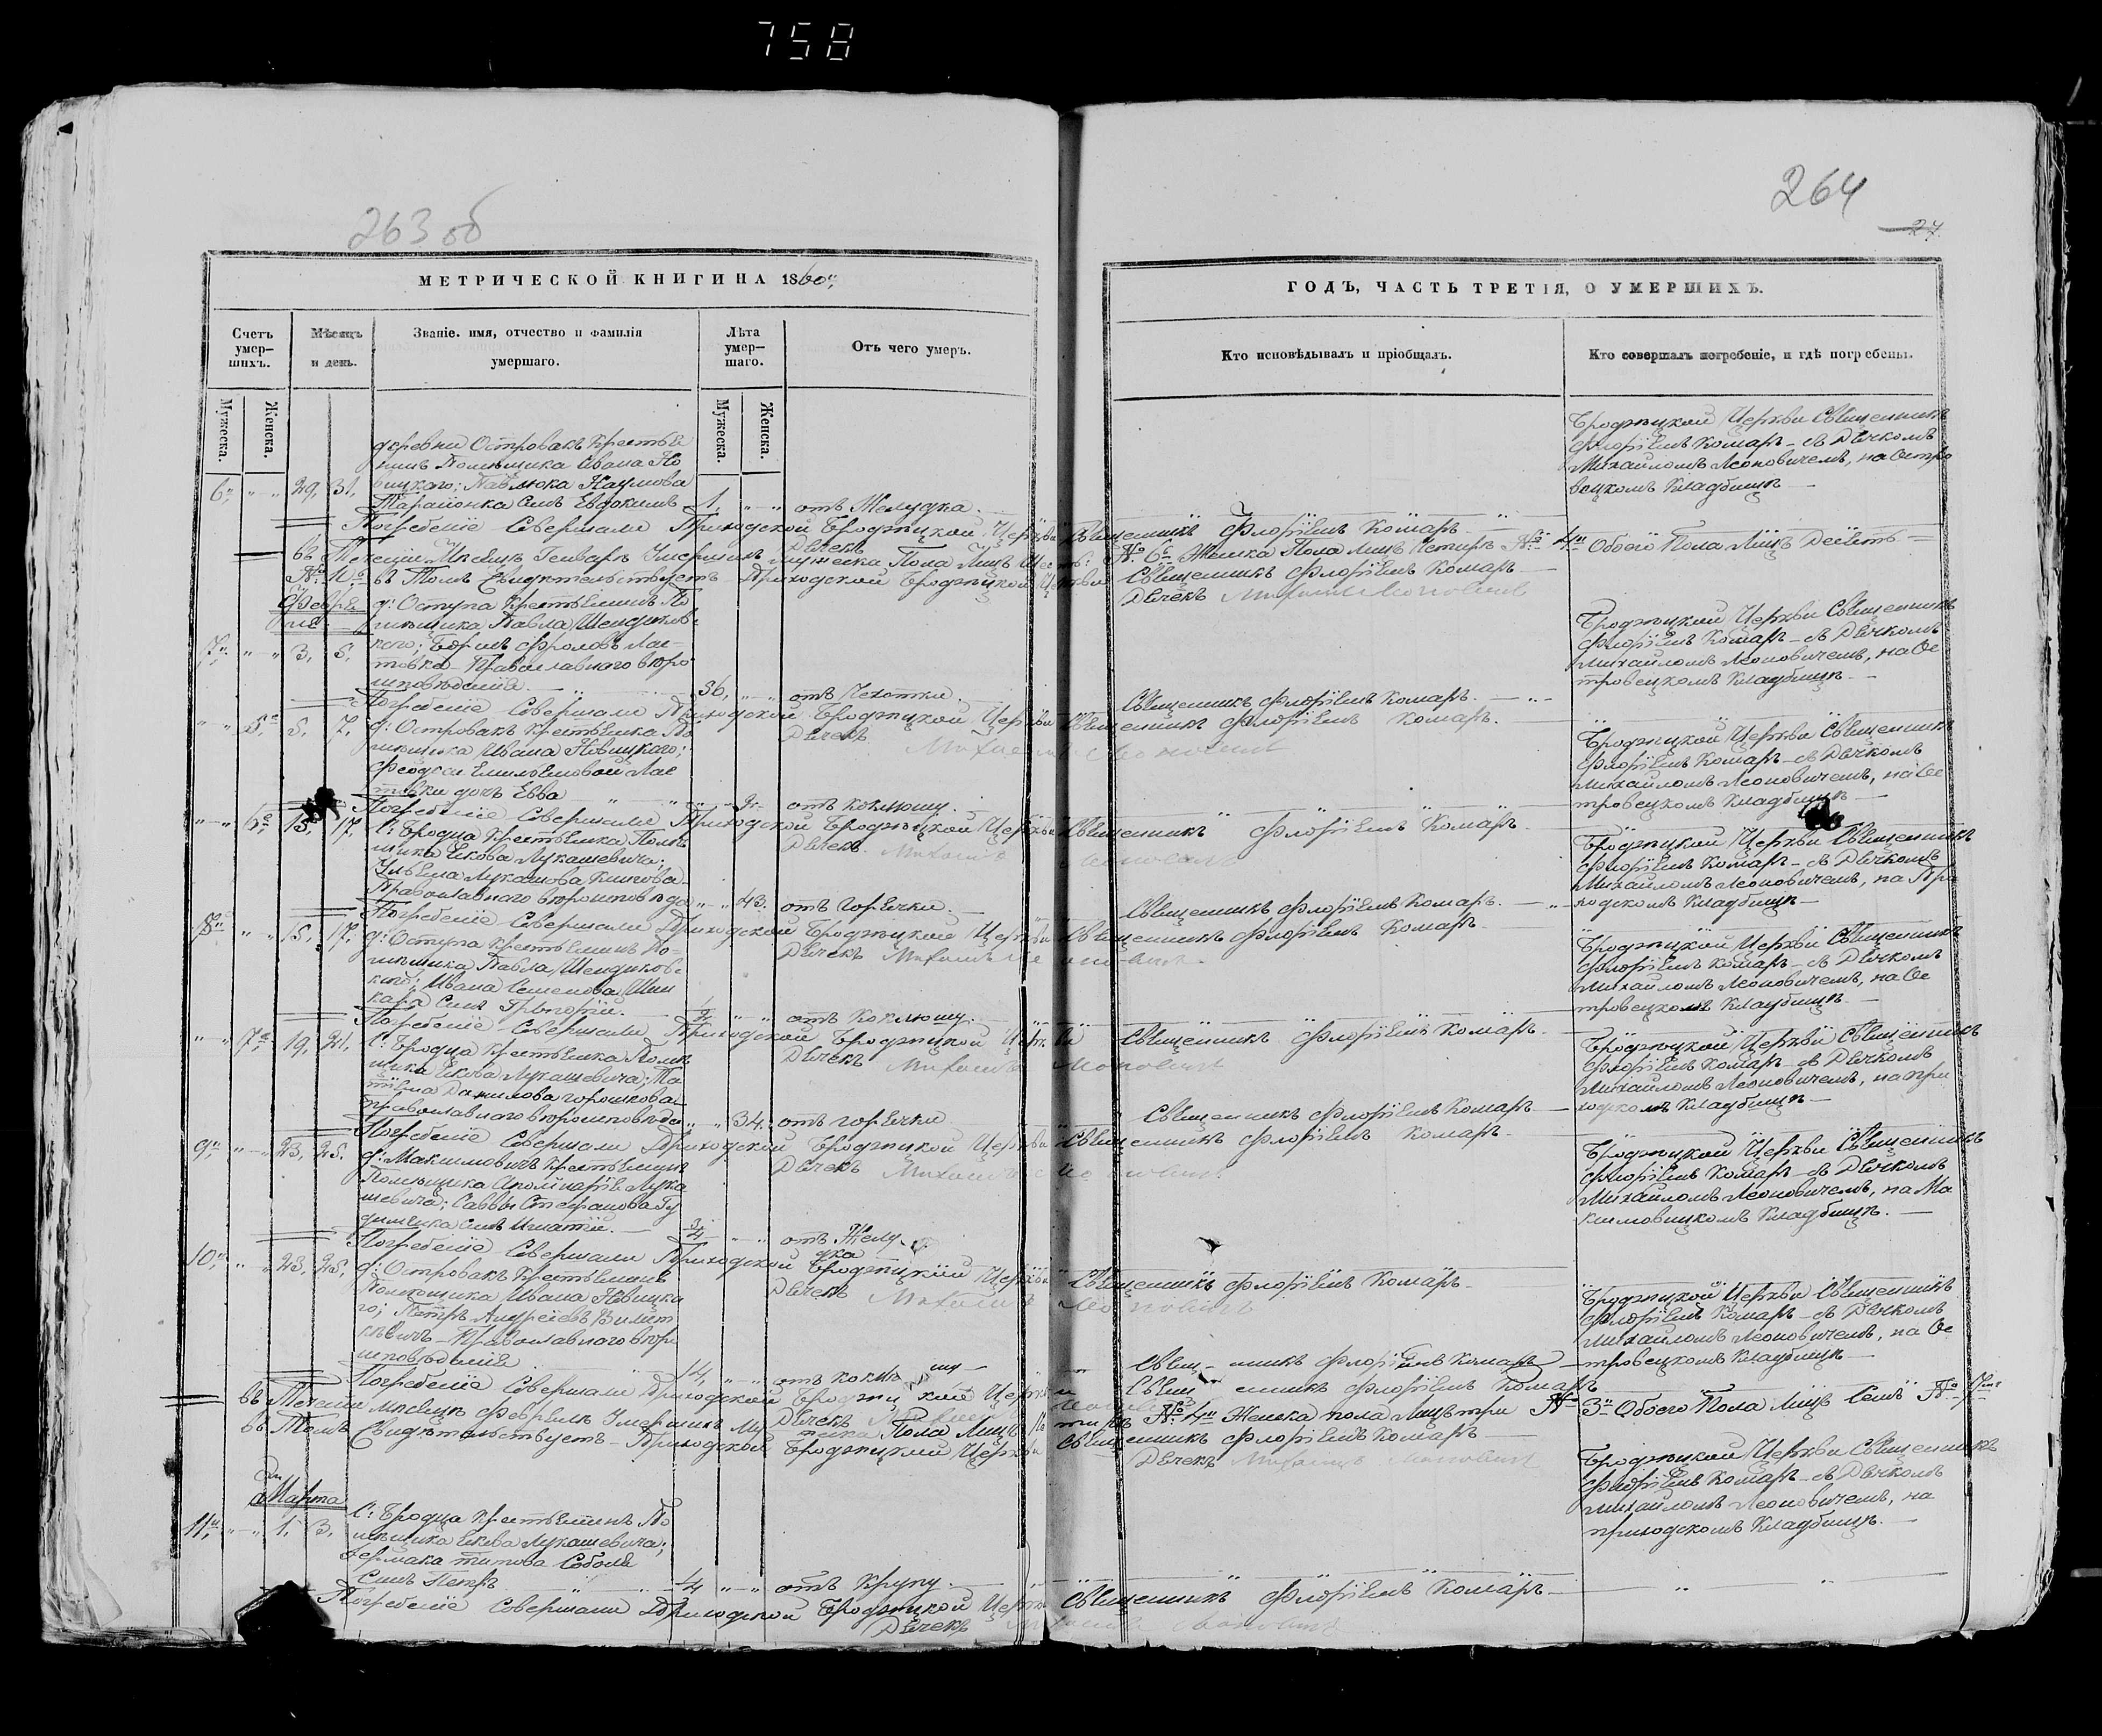 758
263 об
264
27
МЕТРИЧЕСКОЙ КНИГИ НА 1860й
ГОДЪ, ЧАСТЬ ТРЕТІЯ, О УМЕРШИХЪ.
Счетъ умер-шихъ.
Мѣсяцъ и день.
Званіе. имя, отчество и фамилія умершаго.
Лѣта умер-шаго.
Отъ чего умеръ.
Кто исповѣдывалъ и пріобщалъ.
Кто совершалъ погребеніе, и гдѣ погребены.
Мужеска.
Женска.
Мужеска.
Женска.
деревни Островакъ Крестья
нинъ Помѣщика Ивана Но
6. " " 29. 31. вицкаго; Павлюка Наумова
Тарайонка Сынъ Евдокимъ 1. " " отъ Желудка.
Броджицкой Церкви Священникъ
Флоріянъ Комаръ - съ Дячкомъ
Михайломъ Леоновичемъ, на Остро
вецкомъ Кладбищѣ
Погребеніе Совершали Приходской Броджицкой Церкви Священникъ Флоріянъ Комаръ
Дячекъ
въ Теченіи Мѣсяцѣ Генварѣ Умершихъ мужеска Пола Лицъ Шесть: № 6й Женска Пола Лицъ Четыре № 4й Обоего Пола Лицъ Десять
№ 10й въ Томъ Свидѣтельствуетъ Приходской Броджицкой Церкви Священникъ Флоріянъ Комаръ
Дячекъ Михаилъ Леоновичъ
Февра
ля
д: Оступа Крестьянинъ По
мѣщика Павла Шендиков-
7. " " 3. 5. кого; Фроловъ Лас-
товка - Православного вѣро
исповѣданія 36. " " отъ Чехотки.
Священникъ Флоріянъ Комаръ.
Броджицкой Церкви Священникъ
Флоріянъ Комаръ - съ Дячкомъ
Михайломъ Леоновичемъ, на Ос
тровецкомъ Кладбищѣ
Погребеніе Совершали Приходской Броджицкой Церкви Священникъ Флоріянъ Комаръ.
Дячекъ Михаилъ Леоновичъ
" " 5. 5. 7. д: Островакъ Крестьянка По
мѣщика Ивана Новицкаго;
Феодоси Емильяновой Лас
товки дочъ Евва " " 2. отъ коклюшу.
Броджицкой Церкви Священникъ
Флоріянъ Комаръ - съ Дячкомъ
Михайломъ Леоновичемъ, на Ос
тровецкомъ Кладбищѣ
Погребеніе Совершали Приходской Броджицкой Церкви Священникъ Флоріянъ Комаръ
Дячекъ Михаилъ Леоновичъ
" " 6. 15. 17. С: Бродца Крестьянка Помѣ
щика Якова Лукашевича;
Ульяна Лукашова
Православного вѣроисповѣда " " 43. отъ горячки.
Священникъ Флоріянъ Комаръ.
Броджицкой Церкви Священникъ
Флоріянъ Комаръ - съ Дячкомъ
Михайломъ Леоновичемъ, на При
ходскомъ Кладбищѣ
Погребеніе Совершали Приходской Броджицкой Церкви Священникъ Флоріянъ Комаръ
Дячекъ Михаилъ Леоновичъ
8. " " 15. 17. д: Оступа Крестьянинъ По-
мѣщика Павла Шендиков-
кого; Ивана Семенова Шин
кара Сынъ Григорій. " " отъ Коклюшу.
Броджицкой Церкви Священникъ
Флоріянъ Комаръ - съ Дячкомъ
Михайломъ Леоновичемъ, на Ос
тровецкомъ Кладбищѣ
Погребеніе Совершали Приходской Броджицкой Церкви Священникъ Флоріянъ Комаръ
Дячекъ Михаилъ Леоновичъ
" " 7. 19. 21. С: Бродца Крестьянка Помѣ
щика Якова Лукашевича; Та
тіяна Данилова Горошкова
Православного вѣроисповѣда " " 34. отъ горячки
Священникъ Флоріянъ Комаръ
Броджицкой Церкви Священникъ
Флоріянъ Комаръ - съ Дячкомъ
Михайломъ Леоновичемъ, на при
ходскомъ Кладбищѣ
Погребеніе Совершали Приходской Броджицкой Церкви Священникъ Флоріянъ Комаръ
Дячекъ Михаилъ Леоновичъ
9. " " 23. 25. д: Максимовичъ Крестьянинъ
Помѣщика Аполинарія Лука
шевича; Саввы Стефанова Гу
Сынъ Игнатій. 3/4 " " отъ Желу
дка
Броджицкой Церкви Священникъ
Флоріянъ Комаръ - съ Дячкомъ
Михайломъ Леоновичемъ, на Ма
ксимовицкомъ Кладбищѣ.
Погребеніе Совершали Приходской Броджицкій Церкви Священникъ Флоріянъ Комаръ
Дячекъ Михаилъ Леоновичъ
10. " " 23. 25. д: Островакъ Крестьянинъ
Помѣщика Ивана Новицка
го; Петръ Андреевъ
Православного вѣро
исповѣданія 14. " " отъ коклюшу
Священникъ Флоріянъ Комаръ
Броджицкой Церкви Священникъ
Флоріянъ Комаръ - съ Дячкомъ
Михайломъ Леоновичемъ, на Ос
тровецкомъ Кладбищѣ
Погребеніе Совершали Приходской Броджицкой Церкви Священникъ Флоріянъ Комаръ
Дячекъ
въ Теченіи мѣсяцѣ Февралѣ Умершихъ Мужеска Пола Лицъ Четыре № 4й Женска пола Лицъ три № 3й Обоего Пола Лицъ Семь № 7мь
въ Томъ Свидѣтельствуетъ - Приходской Броджицкій Церкви Священникъ Флоріянъ Комаръ
Дячекъ Михаилъ Леоновичъ
Марта
11. " " 1. 3. С: Бродца Крестьянинъ По
мѣщика Якова Лукашевича;
Ермака Титова Соболя
Сынъ Петръ 1/4 " " отъ Крупу.
Броджицкой Церкви Священникъ
Флоріянъ Комаръ - съ Дячкомъ
Михайломъ Леоновичемъ, на
приходскомъ Кладбищѣ.
Погребеніе Совершали Приходской Броджицкой Церкви Священникъ Флоріянъ Комаръ
Дячекъ Михаилъ Леоновичъ